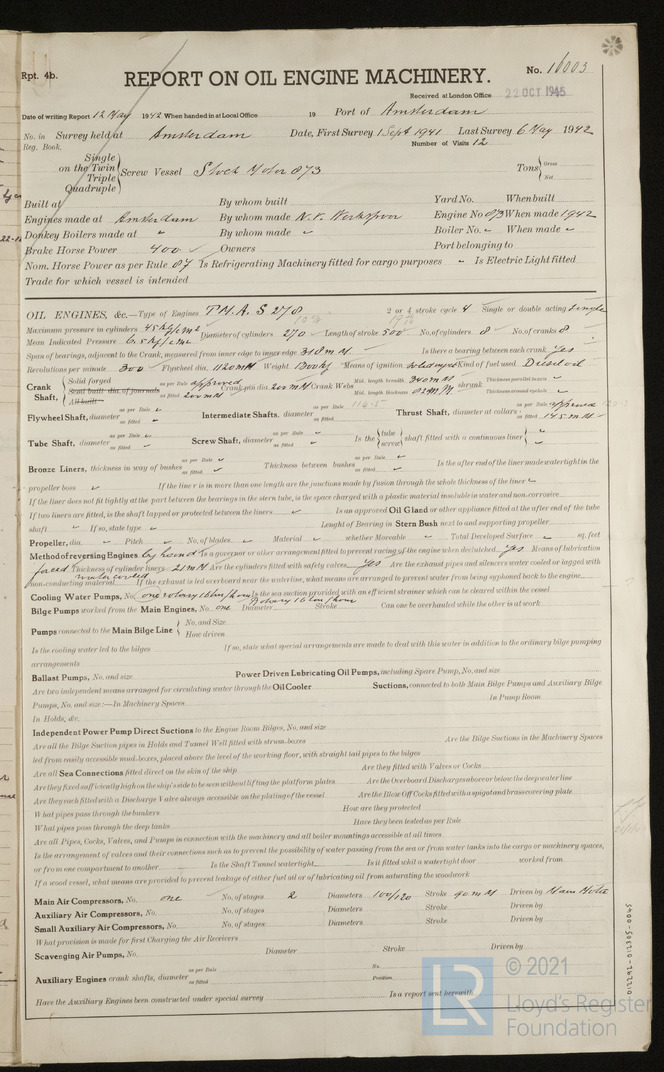 Rpt. 4b.
REPORT ON OIL ENGINE MACHINERY.
No. 16003
Received at London Office 22 OCT 1945
Date of writing Report 12 May 1942 When handed in at Local Office 19 Port of Amsterdam
No. in Survey held at Amsterdam Date, First Survey 1 Sept 1941 Last Survey 6 May 1942
Reg. Book. Number of Visits 12
Single
on the Twin
Triple
Quadruple
Screw Vessel Stock Motor 873 Tons Gross
Net
Built at By whom built Yard No. When built
Engines made at Amsterdam By whom made N.V. Werkspoor Engine No 873 When made 1942
Donkey Boilers made at By whom made Boiler No. When made
Brake Horse Power 400 Owners Port belonging to
Nom. Horse Power as per Rule 87 Is Refrigerating Machinery fitted for cargo purposes Is Electric Light fitted
Trade for which vessel is intended
OIL ENGINES, &c.—Type of Engines T.M.A.S 278 2 or 4 stroke cycle 4 Single or double acting Single
Maximum pressure in cylinders 45 kg/cm2 Diameter of cylinders 270 Length of stroke 500 No. of cylinders 8 No. of cranks 8
Mean Indicated Pressure 6.5 kg/cm2
Span of bearings, adjacent to the Crank, measured from inner edge to inner edge 318 mM Is there a bearing between each crank Yes
Revolutions per minute 300 Flywheel dia. 1120 mM Weight 1300 kg Means of ignition Kind of fuel used Diesel oil
Crank Shaft, Solid forged
Semi built dia. of journals
All built
as per Rule approved
as fitted 200 mM
Crank pin dia. 200 mM Crank Webs Mid. length breadth 340 mM
Mid. length thickness
shrunk Thickness parallel to axis
Thickness around eyehole
Flywheel Shaft, diameter as per Rule
as fitted
Intermediate Shafts, diameter as per Rule 116.5
as fitted
Thrust Shaft, diameter at collars as per Rule approved
as fitted 145 mM
Tube Shaft, diameter as per Rule
as fitted
Screw Shaft, diameter as per Rule
as fitted
Is the tube
screw
shaft fitted with a continuous liner
Bronze Liners, thickness in way of bushes as per Rule
as fitted
Thickness between bushes as per Rule
as fitted
Is the after end of the liner made watertight in the
propeller boss If the liner is in more than one length are the junctions made by fusion through the whole thickness of the liner
If the liner does not fit tightly at the part between the bearings in the stern tube, is the space charged with a plastic material insoluble in water and non-corrosive
If two liners are fitted, is the shaft lapped or protected between the liners Is an approved Oil Gland or other appliance fitted at the after end of the tube
shaft If so, state type Lenght of Bearing in Stern Bush next to and supporting propeller
Propeller, dia. Pitch No. of blades Material whether Moveable Total Developed Surface sq. feet
Method of reversing Engines by hand Is a governor or other arrangement fitted to prevent racing of the engine when declutched Yes Means of lubrication
forced Thickness of cylinder liners 21 mM Are the cylinders fitted with safety valves Yes Are the exhaust pipes and silencers water cooled or lagged with
non-conducting material watercooled If the exhaust is led overboard near the waterline, what means are arranged to prevent water from being syphoned back to the engine
Cooling Water Pumps, No. one rotary 16 ton/hour Is the sea suction provided with an efficient strainer which can be cleared within the vessel
Bilge Pumps worked from the Main Engines, No. one Diameter Rotary 16 ton/hour Stroke Can one be overhauled while the other is at work
Pumps connected to the Main Bilge Line No. and Size
How driven
Is the cooling water led to the bilges If so, state what special arrangements are made to deal with this water in addition to the ordinary bilge pumping
arrangements
Ballast Pumps, No. and size Power Driven Lubricating Oil Pumps, including Spare Pump, No. and size
Are two independent means arranged for circulating water through the Oil Cooler Suctions, connected to both Main Bilge Pumps and Auxiliary Bilge
Pumps, No. and size:—In Machinery Spaces In Pump Room
In Holds, &c.
Independent Power Pump Direct Suctions to the Engine Room Bilges, No. and size
Are all the Bilge Suction pipes in Holds and Tunnel Well fitted with strum-boxes Are the Bilge Suctions in the Machinery Spaces
led from easily accessible mud-boxes, placed above the level of the working floor, with straight tail pipes to the bilges
Are all Sea Connections fitted direct on the skin of the ship Are they fitted with Valves or Cocks
Are they fixed sufficiently high on the ship's side to be seen without lifting the platform plates Are the Overboard Discharges above or below the deep water line
Are they each fitted with a Discharge Valve always accessible on the plating of the vessel Are the Blow Off Cocks fitted with a spigot and brass covering plate
What pipes pass through the bunkers How are they protected
What pipes pass through the deep tanks Have they been tested as per Rule
Are all Pipes, Cocks, Valves, and Pumps in connection with the machinery and all boiler mountings accessible at all times
Is the arrangement of valves and their connections such as to prevent the possibility of water passing from the sea or from water tanks into the cargo or machinery spaces,
or from one compartment to another Is the Shaft Tunnel watertight Is it fitted whit a watertight door worked from
If a wood vessel, what means are provided to prevent leakage of either fuel oil or of lubricating oil from saturating the woodwork
Main Air Compressors, No. one No. of stages 2 Diameters 100/120 Stroke 90 mM Driven by Main Motor
Auxiliary Air Compressors, No. No. of stages Diameters Stroke Driven by
Small Auxiliary Air Compressors, No. No. of stages Diameters Stroke Driven by
What provision is made for first Charging the Air Receivers
Scavenging Air Pumps, No. Diameter Stroke Driven by
Auxiliary Engines crank shafts, diameter as per Rule
as fitted
No.
Position
Have the Auxiliary Engines been constructed under special survey Is a report sent herewith
012292-012305-0045
LR
© 2021
Lloyd's Register
Foundation